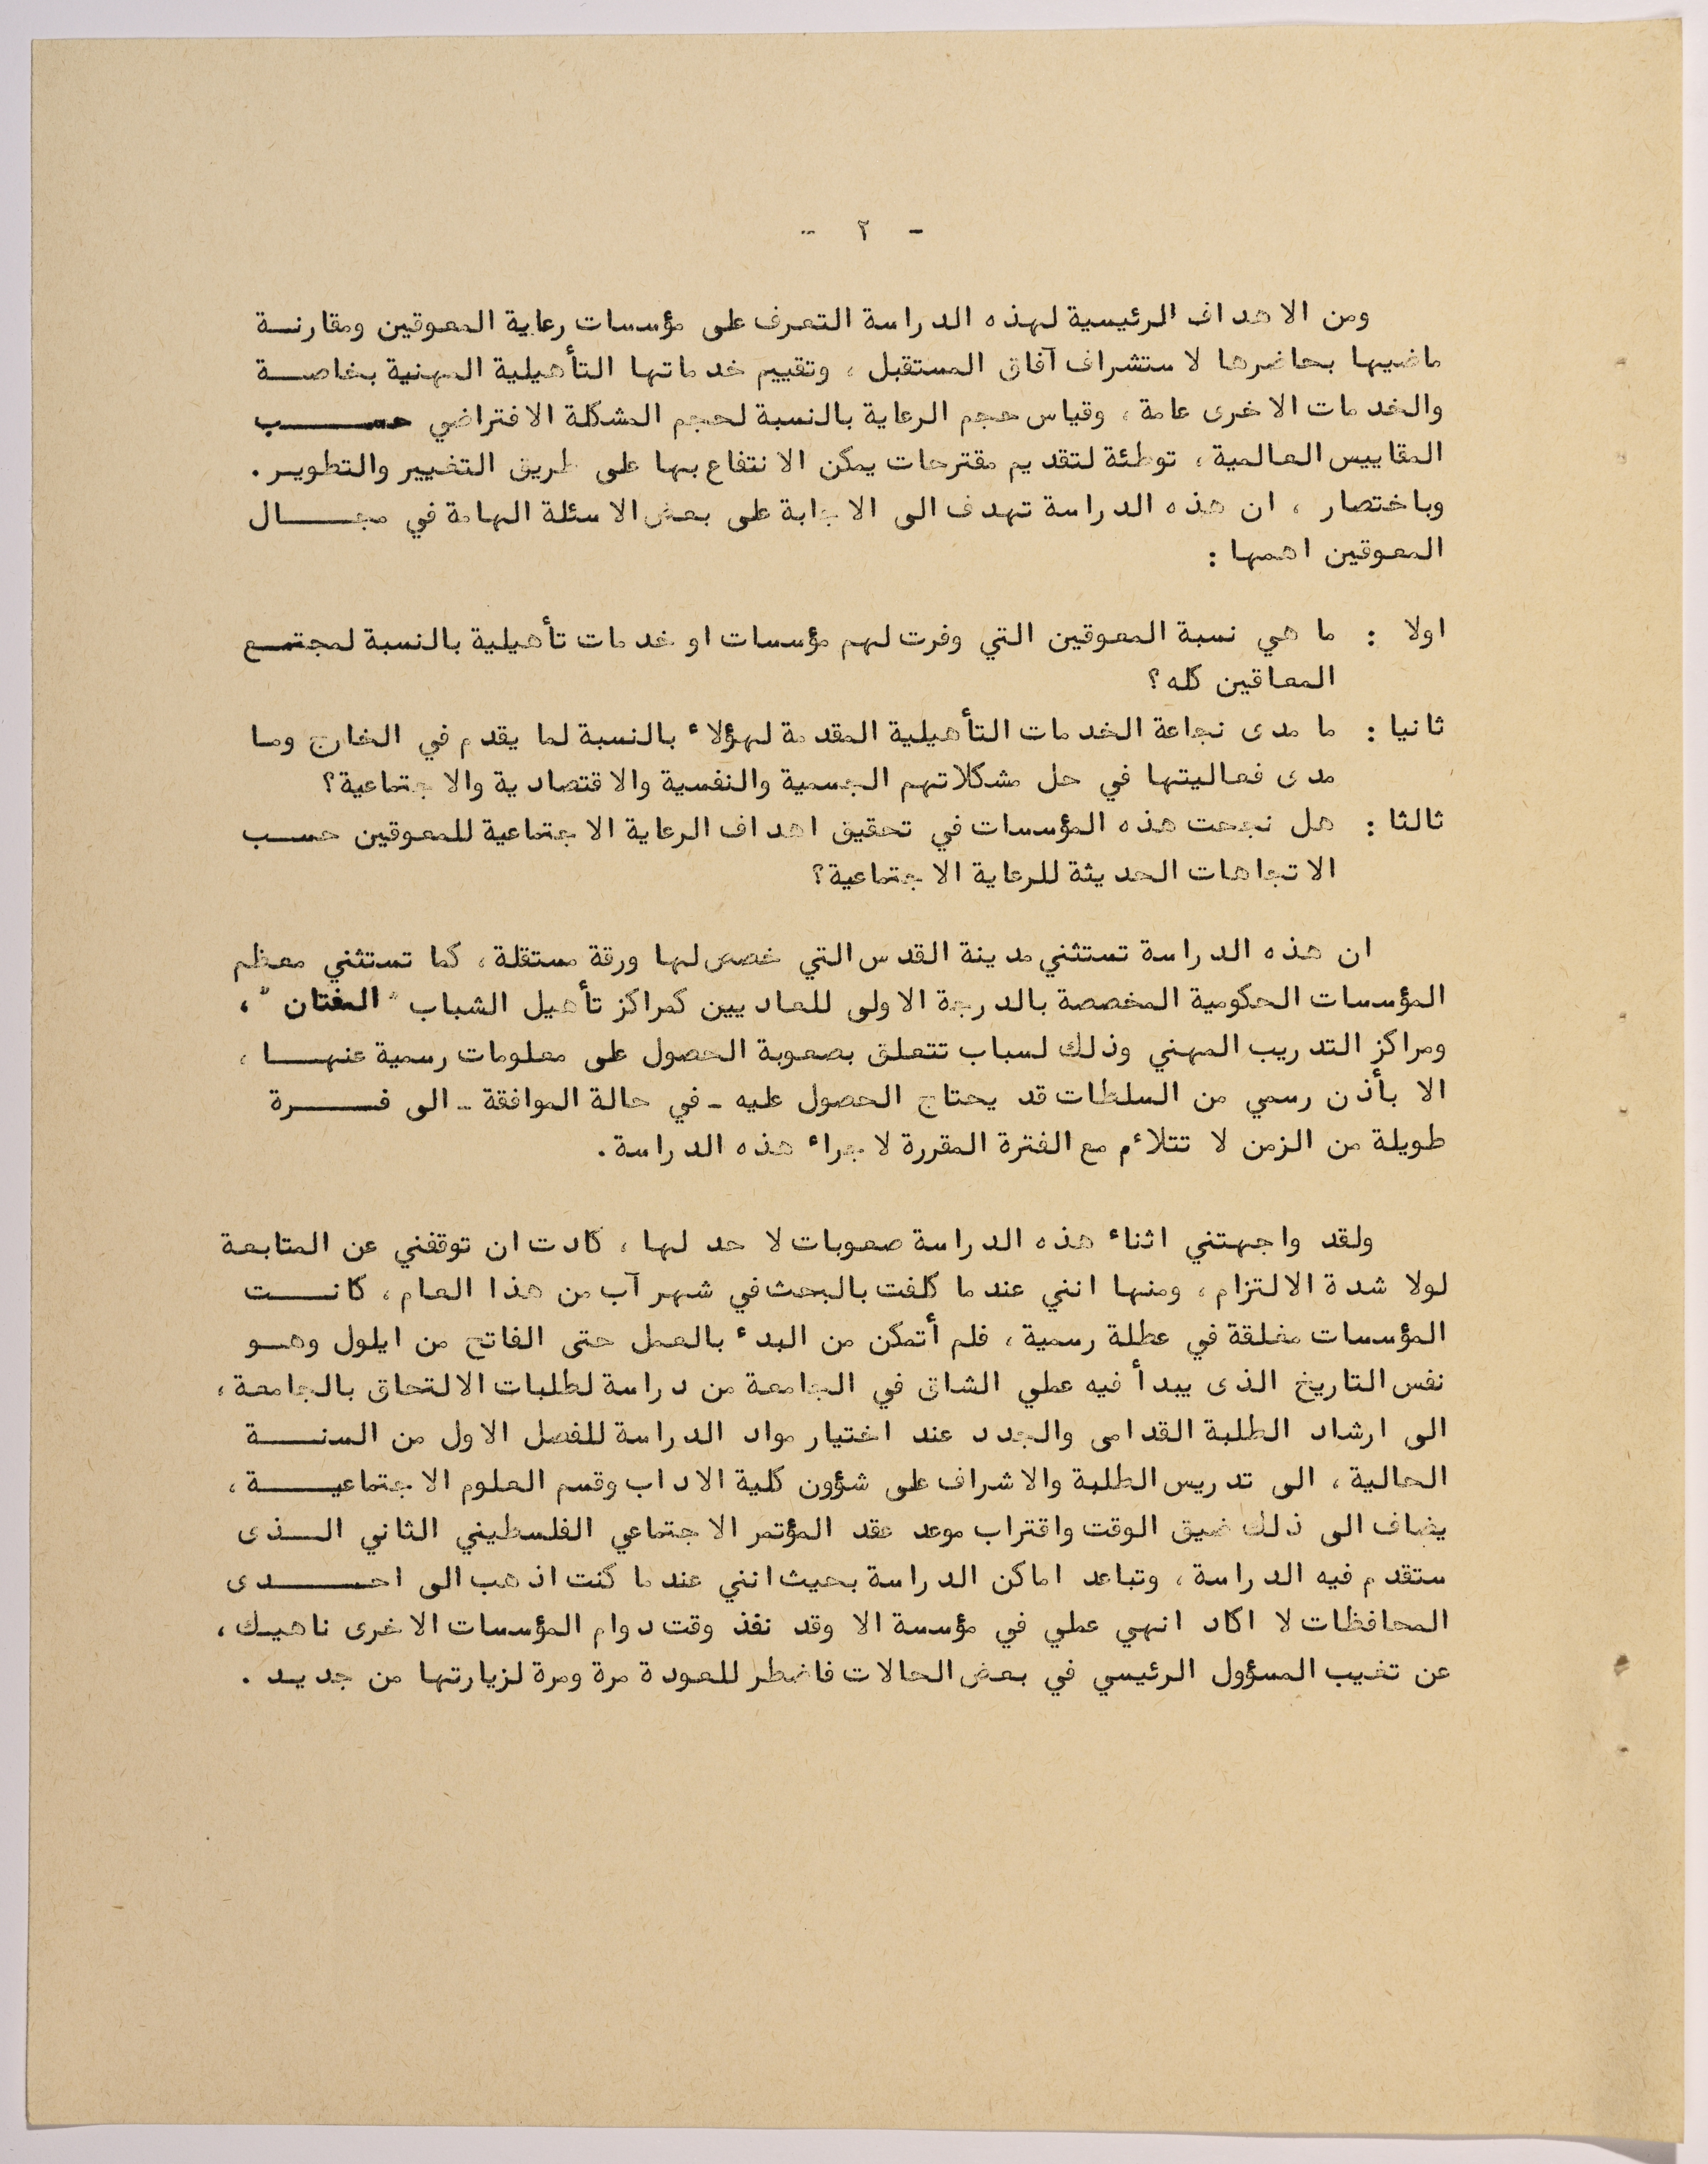 - ٢ -
ومن الاهداف الرئيسية لهذه الدراسة التعرف على مؤسسات رعاية المعوقين ومقارنة
ماضيها بحاضرها لاستشراف آفاق المستقبل ، وتقييم خدماتها التأهيلية المهنية بخاصة
والخدمات الاخرى عامة ، وقياس حجم الرعاية بالنسبة لحجم المشكلة الافتراضي حسب
المقاييس العالمية ، توطئة لتقديم مقترحات يمكن الانتفاع بها على طريق التغيير والتطوير .
وباختصار ، ان هذه الدراسة تهدف الى الاجابة على بعض الاسئلة الهامة في مجال
المعوقين اهمها :
اولا : ما هي نسبة المعوقين التي وفرت لهم مؤسسات او خدمات تأهيلية بالنسبة لمجتمع
المعاقين كله ؟
ثانيا : ما مدى نجاعة الخدمات التأهيلية المقدمة لهؤلاء بالنسبة لما يقدم في الخارج وما
مدى فعاليتها في حل مشكلاتهم الجسمية والنفسية والاقتصادية والاجتماعية ؟
ثالثا : هل نجحت هذه المؤسسات في تحقيق اهداف الرعاية الاجتماعية للمعوقين حسب
الاتجاهات الحديثة للرعاية الاجتماعية ؟
ان هذه الدراسة تستثني مدينة القدس التي خصص لها ورقة مستقلة ، كما تستثني معظم
المؤسسات الحكومية المخصصة بالدرجة الاولى للعاديين كمراكز تأهيل الشباب " المفتان " ،
ومراكز التدريب المهني وذلك لسباب تتعلق بصعوبة الحصول على معلومات رسمية عنها ،
الا بأذن رسمي من السلطات قد يحتاج الحصول عليه - في حالة الموافقة - الى فرة
طويلة من الزمن لا تتلاءم مع الفترة المقررة لاجراء هذه الدراسة .
ولقد واجهتني اثناء هذه الدراسة صعوبات لا حد لها ، كادت ان توقفني عن المتابعة
لولا شدة الالتزام ، ومنها انني عندما كلفت بالبحث في شهر آب من هذا العام ، كانت
المؤسسات مغلقة في عطلة رسمية ، فلم أتمكن من البدء بالعمل حتى الفاتح من ايلول وهو
نفس التاريخ الذى يبدأ فيه عملي الشاق في الجامعة من دراسة لطلبات الالتحاق بالجامعة ،
الى ارشاد الطلبة القدامى والجدد عند اختيار مواد الدراسة للفصل الاول من السنة
الحالية ، الى تدريس الطلبة والاشراف على شؤون كلية الاداب وقسم العلوم الاجتماعية ،
يضاف الى ذلك ضيق الوقت واقتراب موعد عقد المؤتمر الاجتماعي الفلسطيني الثاني الذى
ستقدم فيه الدراسة ، وتباعد اماكن الدراسة بحيث انني عندما كنت اذهب الى احدى
المحافظات لا اكاد انهي عملي في مؤسسة الا وقد نفذ وقت دوام المؤسسات الاخرى ناهيك ،
عن تغيب المسؤول الرئيسي في بعض الحالات فاضطر للعودة مرة ومرة لزيارتها من جديد .